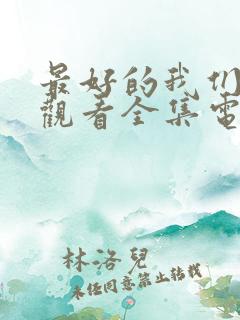 最好的我们
觀看全集電
林洛兒
未经同意禁止转载